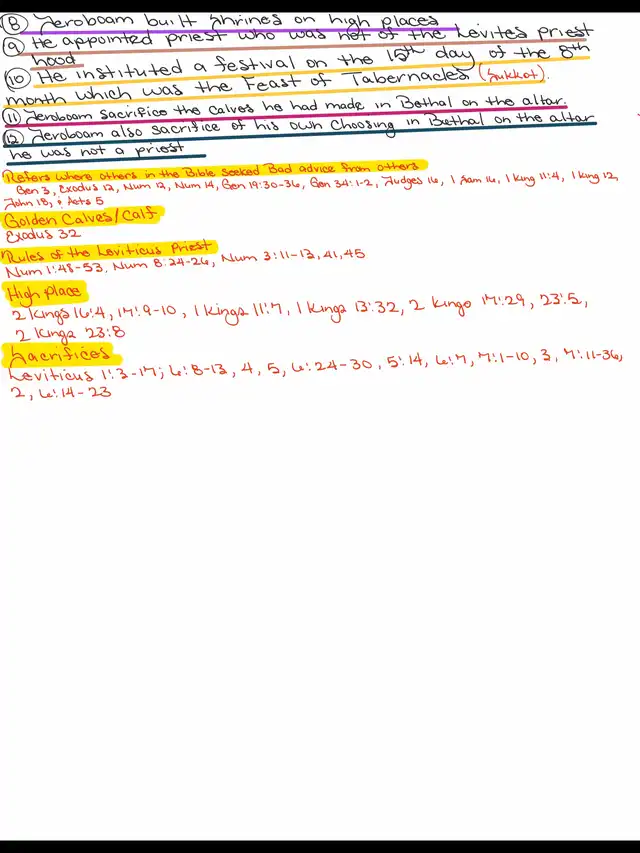 ⑧ Jeroboam built Shrines on high places
⑨ He appointed priest who was not of the Levites Priest
hood
⑩ He instituted a festival on the 15th day of the 8th
month which was the Feast of Tabernacles (Sukkot).
⑪ Jeroboam sacrifice the calves he had made in Bethal on the altar.
⑫ Jeroboam also sacrifice of his own choosing in Bethal on the altar
he was not a priest
Refers where others in the Bible seeked Bad advice from others
Gen 3, Exodus 12, Num 12, Num 14, Gen 19:30-36, Gen 34:1-2, Judges 16, 1 Sam 16, 1 King 11:4, 1 King 12,
John 18, & Acts 5
Golden Calves/Calf
Exodus 32
Rules of the Leviticus Priest
Num 1:48-53, Num 8:24-26, Num 3:11-13, 41, 45
High Place
2 Kings 16:4, 17:9-10, 1 Kings 11:7, 1 Kings 13:32, 2 Kings 17:29, 23:5,
2 Kings 23:8
Sacrifices
Leviticus 1:3-17; 6:8-13, 4, 5, 6:24-30, 5:14, 6:7, 7:1-10, 3, 7:11-36,
2, 6:14-23